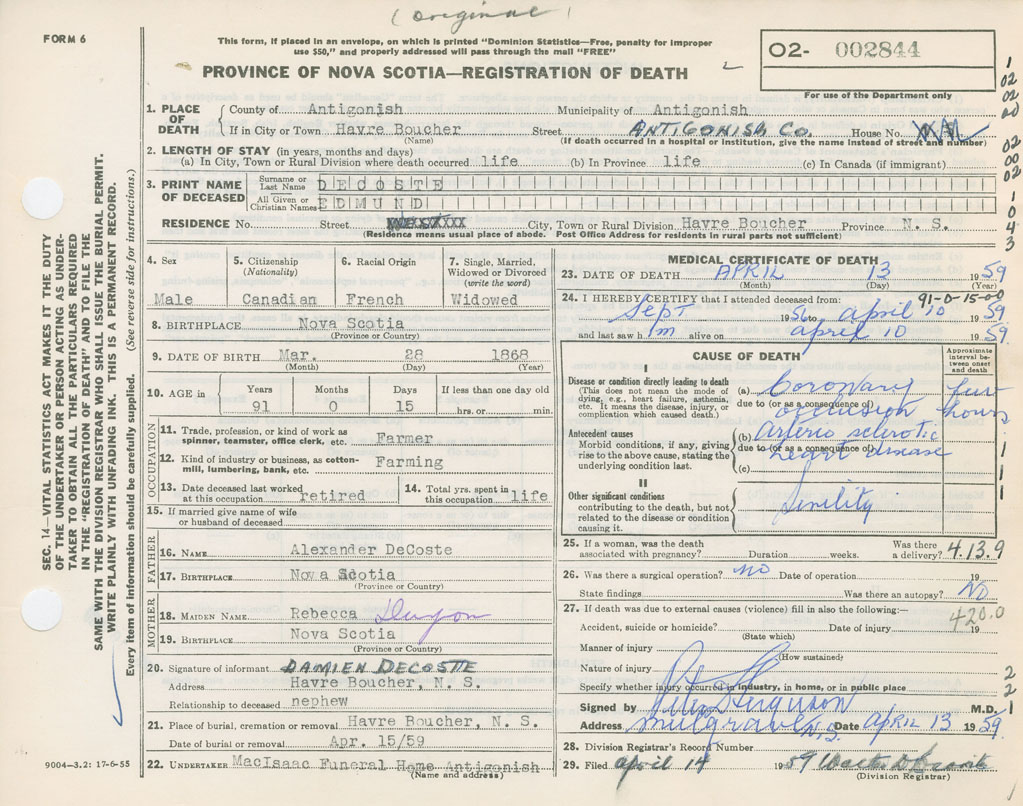 (original)
FORM 6
This form, if placed in an envelope, on which is printed "Dominion Statistics—Free, penalty for improper
use $50," and properly addressed will pass through the mail "FREE"
PROVINCE OF NOVA SCOTIA—REGISTRATION OF DEATH
02- 002844
For use of the Department only
1. PLACE OF DEATH { County of Antigonish Municipality of Antigonish
If in City or Town Havre Boucher Street ANTIGONISH CO. House No.
(Name) (If death occurred in a hospital or institution, give the name instead of street and number)
2. LENGTH OF STAY (in years, months and days)
(a) In City, Town or Rural Division where death occurred life (b) In Province life (c) In Canada (if immigrant)
3. PRINT NAME OF DECEASED { Surname or Last Name DECOSTE
All Given or Christian Names EDMUND
RESIDENCE No. Street City, Town or Rural Division Havre Boucher Province N. S.
(Residence means usual place of abode. Post Office Address for residents in rural parts not sufficient)
1
02
02
00
02
00
02
1
0
4
3
SEC. 14—VITAL STATISTICS ACT MAKES IT THE DUTY
OF THE UNDERTAKER OR PERSON ACTING AS UNDER-
TAKER TO OBTAIN ALL THE PARTICULARS REQUIRED
IN THE "REGISTRATION OF DEATH" AND TO FILE THE
SAME WITH THE DIVISION REGISTRAR WHO SHALL ISSUE THE BURIAL PERMIT.
WRITE PLAINLY WITH UNFADING INK. THIS IS A PERMANENT RECORD.
Every item of information should be carefully supplied. (See reverse side for instructions.)
4. Sex
Male
5. Citizenship
(Nationality)
Canadian
6. Racial Origin
French
7. Single, Married,
Widowed or Divorced
(write the word)
Widowed
8. BIRTHPLACE Nova Scotia
(Province or Country)
9. DATE OF BIRTH Mar. 28 1868
(Month) (Day) (Year)
10. AGE in Years Months Days If less than one day old
91 0 15 hrs. or min.
OCCUPATION
11. Trade, profession, or kind of work as
spinner, teamster, office clerk, etc. Farmer
12. Kind of industry or business, as cotton-
mill, lumbering, bank, etc. Farming
13. Date deceased last worked
at this occupation retired
14. Total yrs. spent in
this occupation life
15. If married give name of wife
or husband of deceased
FATHER
16. NAME Alexander DeCoste
17. BIRTHPLACE Nova Scotia
(Province or Country)
MOTHER
18. MAIDEN NAME Rebecca
19. BIRTHPLACE Nova Scotia
(Province or Country)
20. Signature of informant DAMIEN DECOSTE
Address Havre Boucher, N. S.
Relationship to deceased nephew
21. Place of burial, cremation or removal Havre Boucher, N. S.
Date of burial or removal Apr. 15/59
22. UNDERTAKER MacIsaac Funeral Home Antigonish
(Name and address)
9004-3.2: 17-6-55
MEDICAL CERTIFICATE OF DEATH
23. DATE OF DEATH APRIL 13 1959
(Month) (Day) (Year)
91-0-15-00
24. I HEREBY CERTIFY that I attended deceased from:
Sept 1956 to April 10 1959
and last saw h im alive on April 10 1959
CAUSE OF DEATH
Approximate
interval be-
tween onset
and death
I
Disease or condition directly leading to death
(This does not mean the mode of
dying, e.g., heart failure, asthenia,
etc. It means the disease, injury, or
complication which caused death.)
(a) Coronary few
due to (or as a consequence of)
occlusion hours
Antecedent causes
Morbid conditions, if any, giving
rise to the above cause, stating the
underlying condition last.
(b) Arterio sclerotic
due to (or as a consequence of)
heart disease
(c)
II
Other significant conditions
contributing to the death, but not
related to the disease or condition
causing it.
Senility
25. If a woman, was the death
associated with pregnancy? Duration weeks. Was there
a delivery? 4.13.9
26. Was there a surgical operation? NO Date of operation 19
State findings Was there an autopsy? NO
27. If death was due to external causes (violence) fill in also the following:—
420.0
Accident, suicide or homicide? Date of injury 19
(State which)
Manner of injury
(How sustained)
Nature of injury
Specify whether injury occurred in industry, in home, or in public place
Signed by Ferguson M.D.
Address Mulgrave N.S. Date APRIL 13 1959
2
2
1
28. Division Registrar's Record Number
29. Filed April 14 1959
(Division Registrar)